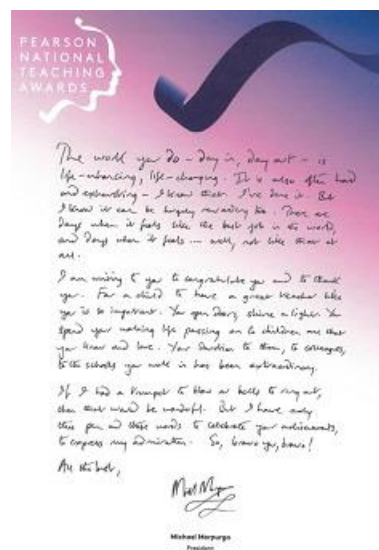 PEARSON
NATIONAL
TEACHING
AWARDS
The work you do - day in, day out - is
life-enhancing, life-changing. It is also often hard
and exhausting - I know that. I've done it. But
I know it can be hugely rewarding too. There are
days when it feels like the best job in the world,
and days when it feels .... well, not like that at
all.
I am writing to you to congratulate you and to thank
you. For a child to have a great teacher like
you is so important. You open doors, shine a light. You
spend your working life passing on to children all that
you know and love. Your devotion to them, to colleagues,
to the schools you work in has been extraordinary.
If I had a trumpet to blow or bells to ring out,
then that would be wonderful. But I have only
this pen and these words to celebrate your achievements,
to express my admiration. So, bravo you, bravo!
All the best,
Michael Morpurgo
President